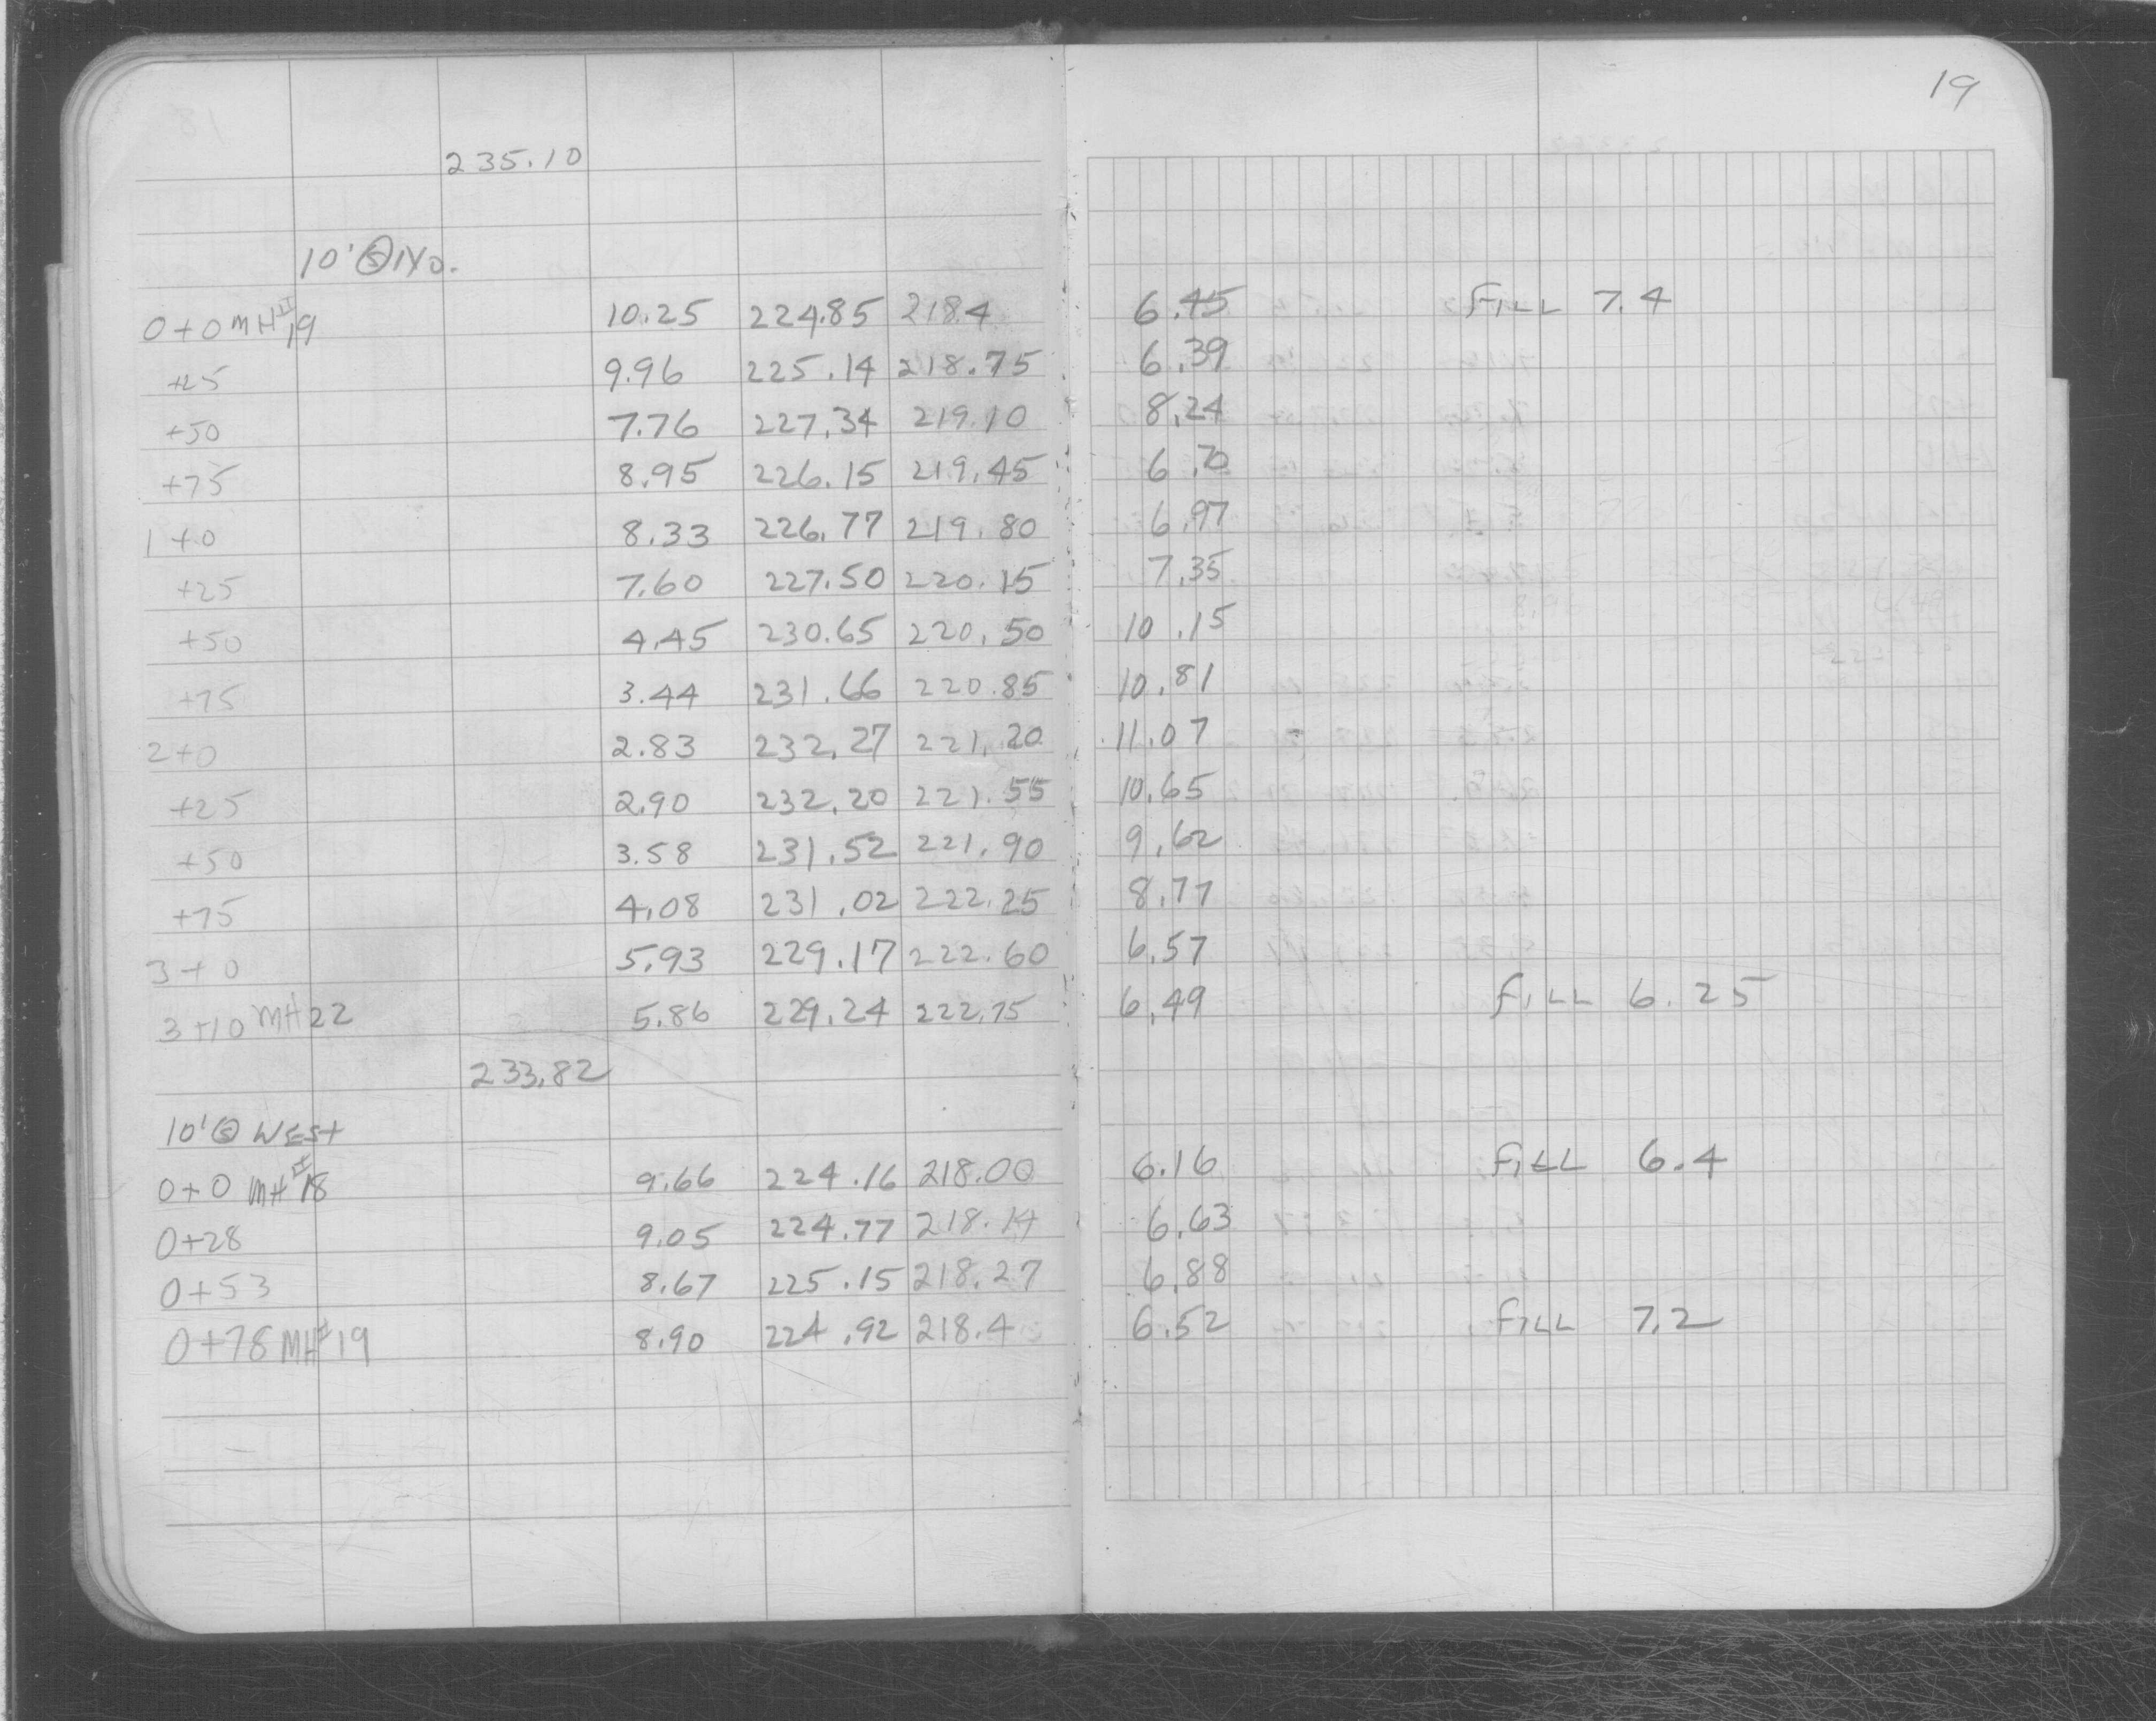 19
235.10
10' Ⓢ No.
0+0 MH#19 10.25 224.85 218.4 6.45 FILL 7.4
+25 9.96 225.14 218.75 6.39
+50 7.76 227.34 219.10 8.24
+75 8.95 226.15 219.45 6.70
1+0 8.33 226.77 219.80 6.97
+25 7.60 227.50 220.15 7.35
+50 4.45 230.65 220.50 10.15
+75 3.44 231.66 220.85 10.81
2+0 2.83 232.27 221.20 11.07
+25 2.90 232.20 221.55 10.65
+50 3.58 231.52 221.90 9.62
+75 4.08 231.02 222.25 8.77
3+0 5.93 229.17 222.60 6.57
3+10 MH 22 5.86 229.24 222.75 6.49 FILL 6.25
233.82
10' Ⓢ WEST
0+0 MH#18 9.66 224.16 218.00 6.16 FILL 6.4
0+28 9.05 224.77 218.14 6.63
0+53 8.67 225.15 218.27 6.88
0+78 MH#19 8.90 224.92 218.4 6.52 FILL 7.2